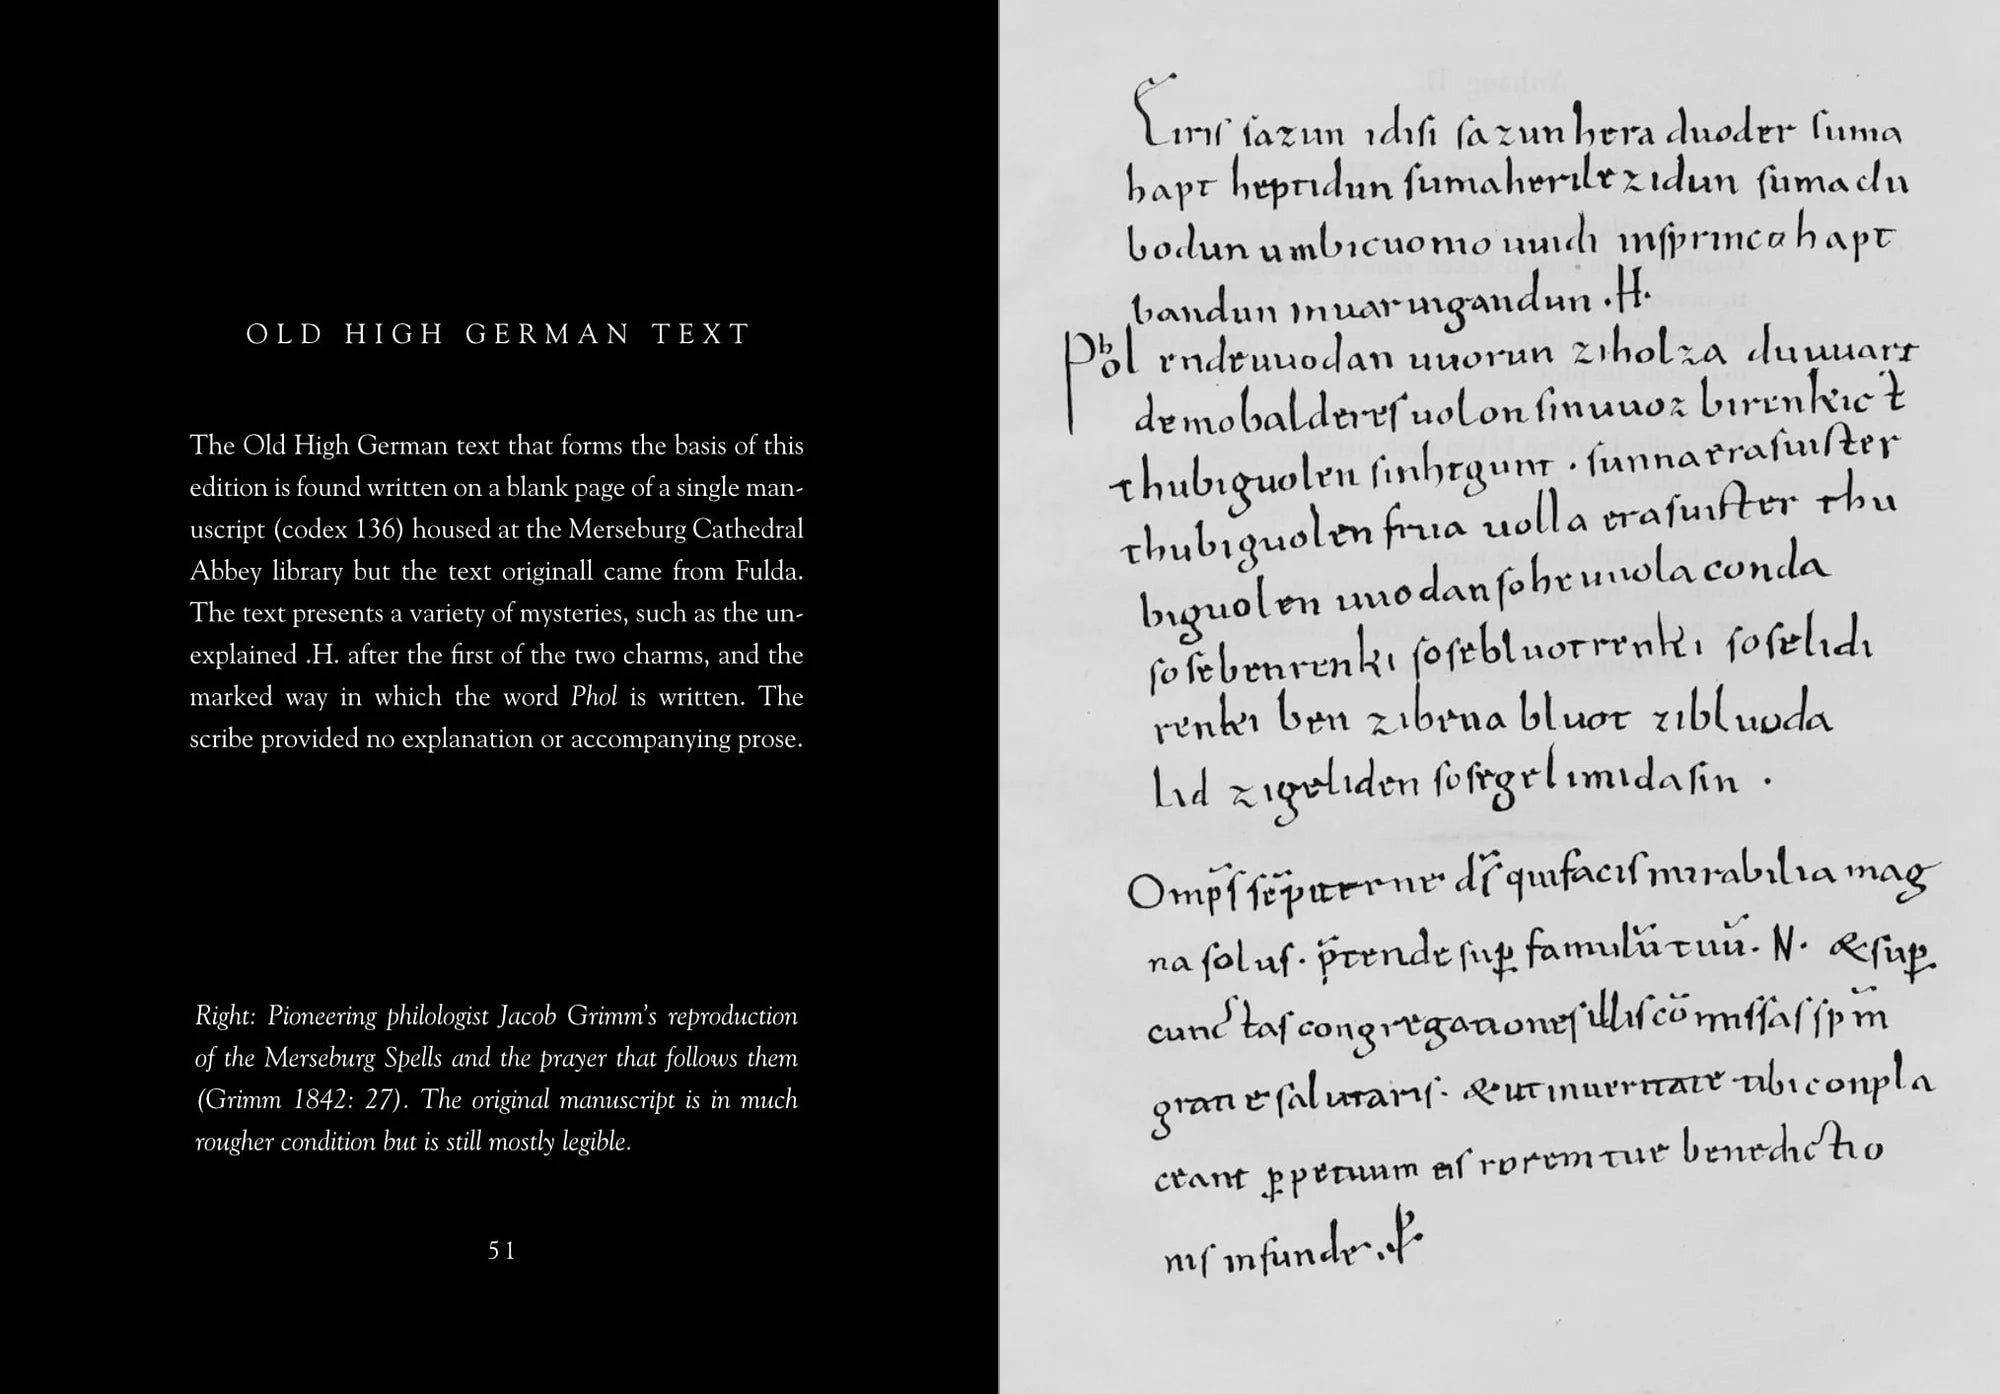 OLD HIGH GERMAN TEXT
The Old High German text that forms the basis of this
edition is found written on a blank page of a single man-
uscript (codex 136) housed at the Merseburg Cathedral
Abbey library but the text originall came from Fulda.
The text presents a variety of mysteries, such as the un-
explained .H. after the first of the two charms, and the
marked way in which the word Phol is written. The
scribe provided no explanation or accompanying prose.
Right: Pioneering philologist Jacob Grimm's reproduction
of the Merseburg Spells and the prayer that follows them
(Grimm 1842: 27). The original manuscript is in much
rougher condition but is still mostly legible.
51
Eiriſ ſazun idiſi ſazun hera duoder ſuma
hapt heptidun ſumaherilezidun ſuma clu
bodun umbicuomo uuidi inſprinca hapt
bandun inuar uigandun .H.
Phol endeuuodan uuorun ziholza du uuart
demobaldereſ uolon ſin uuoz birenkict
thubiguolen ſinhtgunt · ſunnaeraſuiſter
thubiguolen friia uolla eraſuiſter thu
biguolen uuodan ſohe uuola conda
ſoſebenrenki ſoſebluotrenki ſoſelidi
renki ben zibena bluot zibluoda
lid zigeliden ſoſegelimidaſin .
Omp̄ſ ſēpiterne dſ̄ quifaciſ mirabilia mag
na ſoluſ. p̄tende ſup̲ famulū tuū. N. &ſup̲
cunctaſ congregationeſ illiſ cōmiſſaſ ſpm̄
gratie ſalutariſ. &ut inueritate tibi conpla
ceant p̲petuum eiſ rorem tue benedictio
niſ infunde.